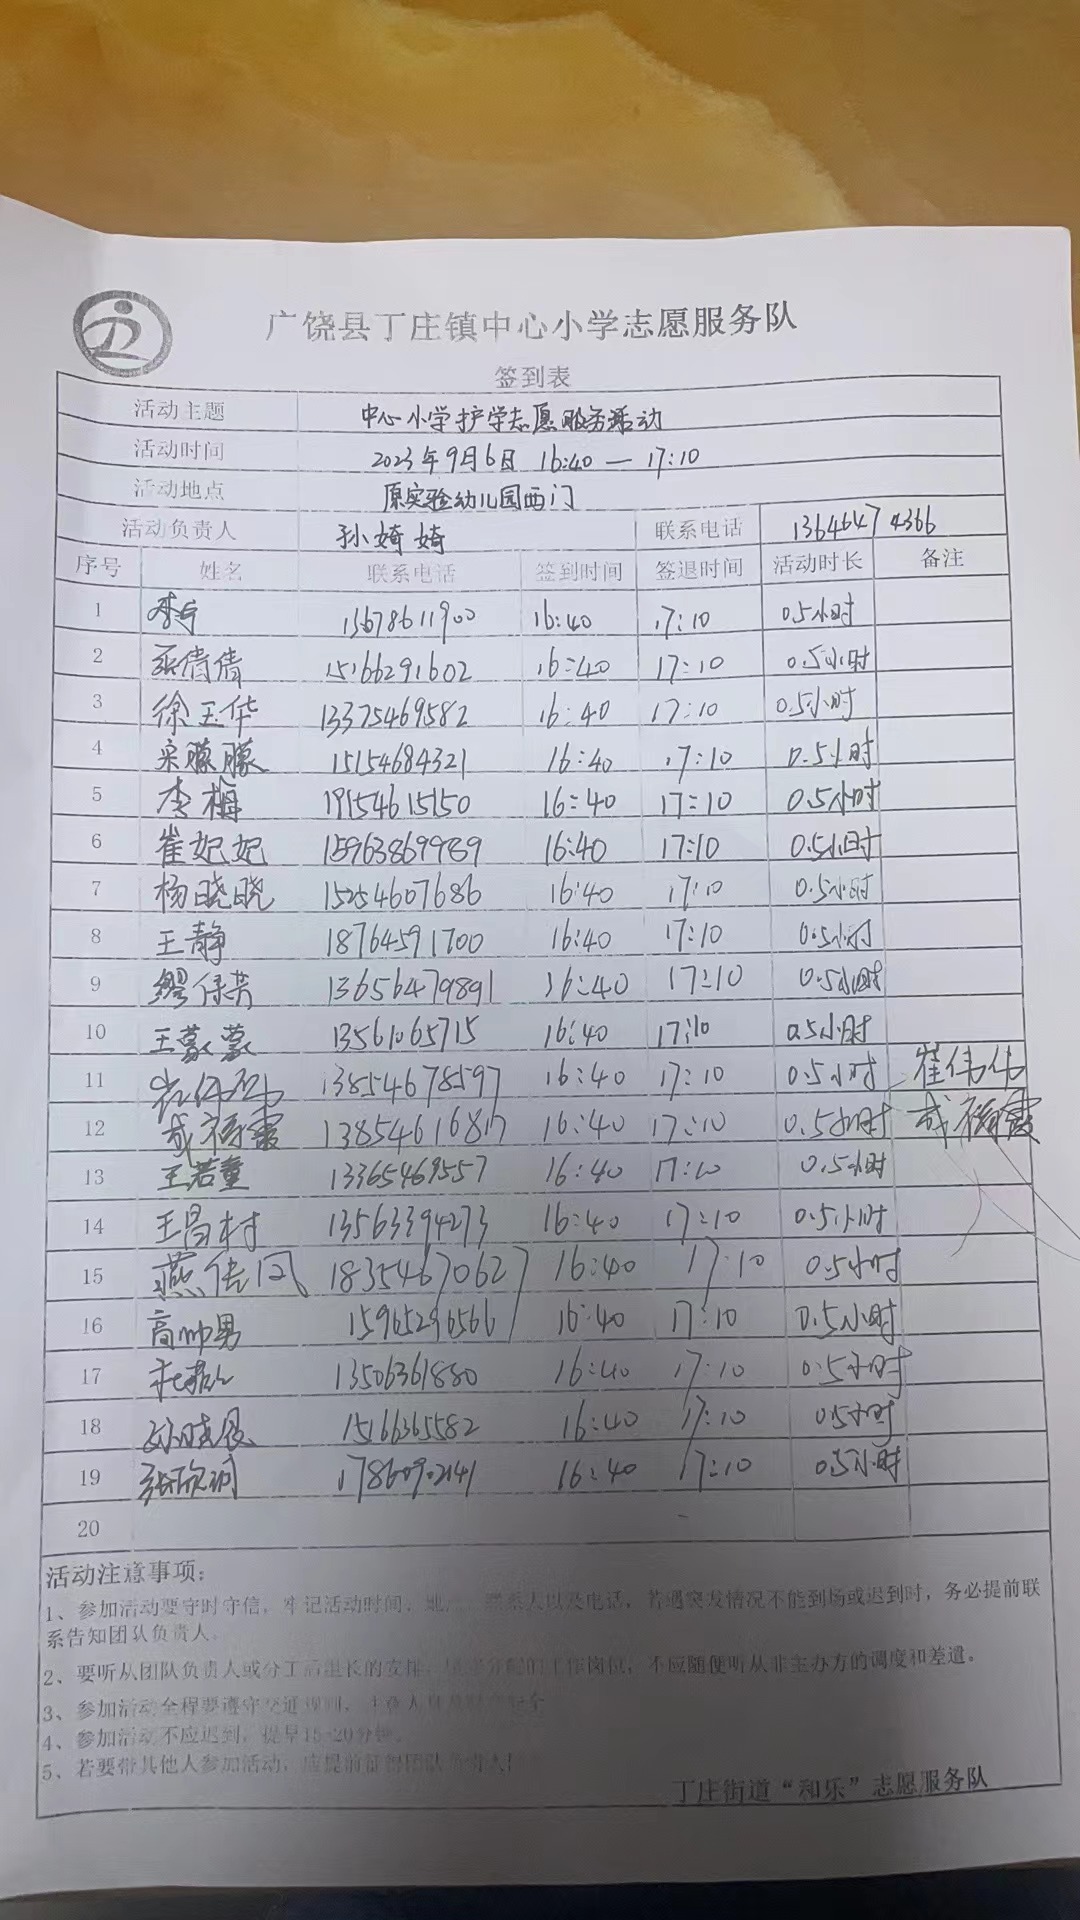 广饶县丁庄镇中心小学志愿服务队
签到表
活动主题 中心小学护学志愿服务活动
活动时间 2023年9月6日 16:40—17:10
活动地点 原实验幼儿园西门
活动负责人 孙婍婍 联系电话 13646474366
序号 姓名 联系电话 签到时间 签退时间 活动时长 备注
1 李宁 13678611900 16:40 17:10 0.5小时
2 倩倩 15166291602 16:40 17:10 0.5小时
3 徐玉华 13375469582 16:40 17:10 0.5小时
4 宋朦朦 15154684321 16:40 17:10 0.5小时
5 李梅 19154615150 16:40 17:10 0.5小时
6 崔妃妃 15963869989 16:40 17:10 0.5小时
7 杨晓晓 15254607686 16:40 17:10 0.5小时
8 王静 18764591700 16:40 17:10 0.5小时
9 缪佳芳 13656479891 16:40 17:10 0.5小时
10 王蒙蒙 13561065715 16:40 17:10 0.5小时
11 崔伟伟 13854678597 16:40 17:10 0.5小时 崔伟伟
12 成福霞 13854616817 16:40 17:10 0.5小时 成福霞
13 王若童 13365469557 16:40 17:10 0.5小时
14 王昌村 13563394273 16:40 17:10 0.5小时
15 燕佳凤 18354670627 16:40 17:10 0.5小时
16 高帅男 15965296566 16:40 17:10 0.5小时
17 13506361880 16:40 17:10 0.5小时
18 孙晓良 15166365582 16:40 17:10 0.5小时
19 张欣润 17860902141 16:40 17:10 0.5小时
20
活动注意事项：
1、参加活动要守时守信，牢记活动时间、地 联系人以及电话，若遇突发情况不能到场或迟到时，务必提前联
系告知团队负责人。
2、要听从团队负责人或分工后组长的安排， 工作岗位，不应随便听从非主办方的调度和差遣。
3、参加活动全程要遵守交通规则，注意人身 安全
4、参加活动不应迟到，提早15-20分钟。
5、若要带其他人参加活动，应提前征得团队负责人
丁庄街道“和乐”志愿服务队